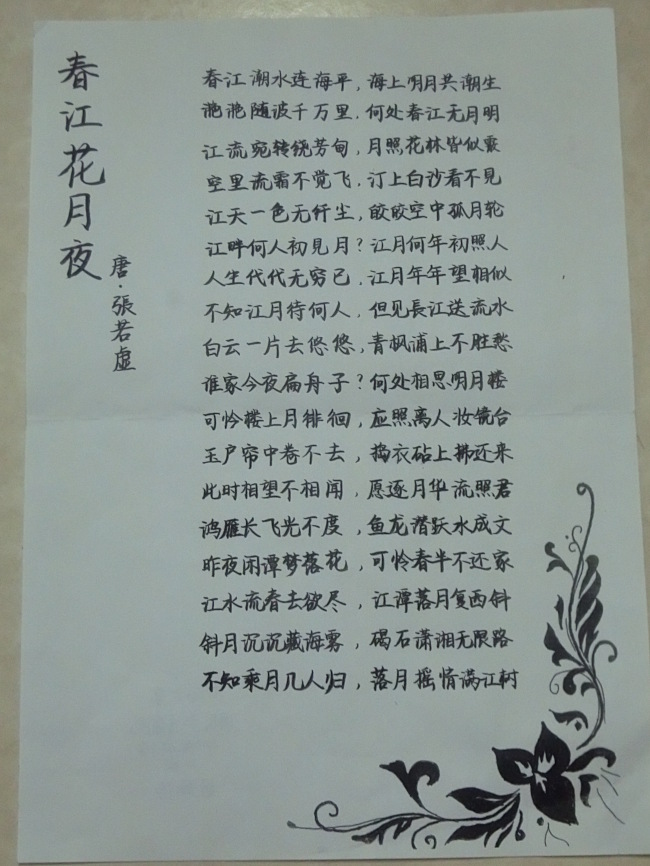 春江花月夜
唐·張若虚
春江潮水连海平，海上明月共潮生
滟滟随波千万里．何处春江无月明
江流宛转绕芳甸，月照花林皆似霰
空里流霜不觉飞．汀上白沙看不见
江天一色无纤尘，皎皎空中孤月轮
江畔何人初見月？江月何年初照人
人生代代无穷已．江月年年望相似
不知江月待何人，但见長江送流水
白云一片去悠悠，青枫浦上不胜愁
谁家今夜扁舟子？何处相思明月楼
可怜楼上月徘徊，应照离人妆镜台
玉户帘中卷不去，捣衣砧上拂还来
此时相望不相闻，愿逐月华流照君
鸿雁长飞光不度，鱼龙潜跃水成文
昨夜闲潭梦落花，可怜春半不还家
江水流春去欲尽，江潭落月复西斜
斜月沉沉藏海雾，碣石潇湘无限路
不知乘月几人归，落月摇情满江树